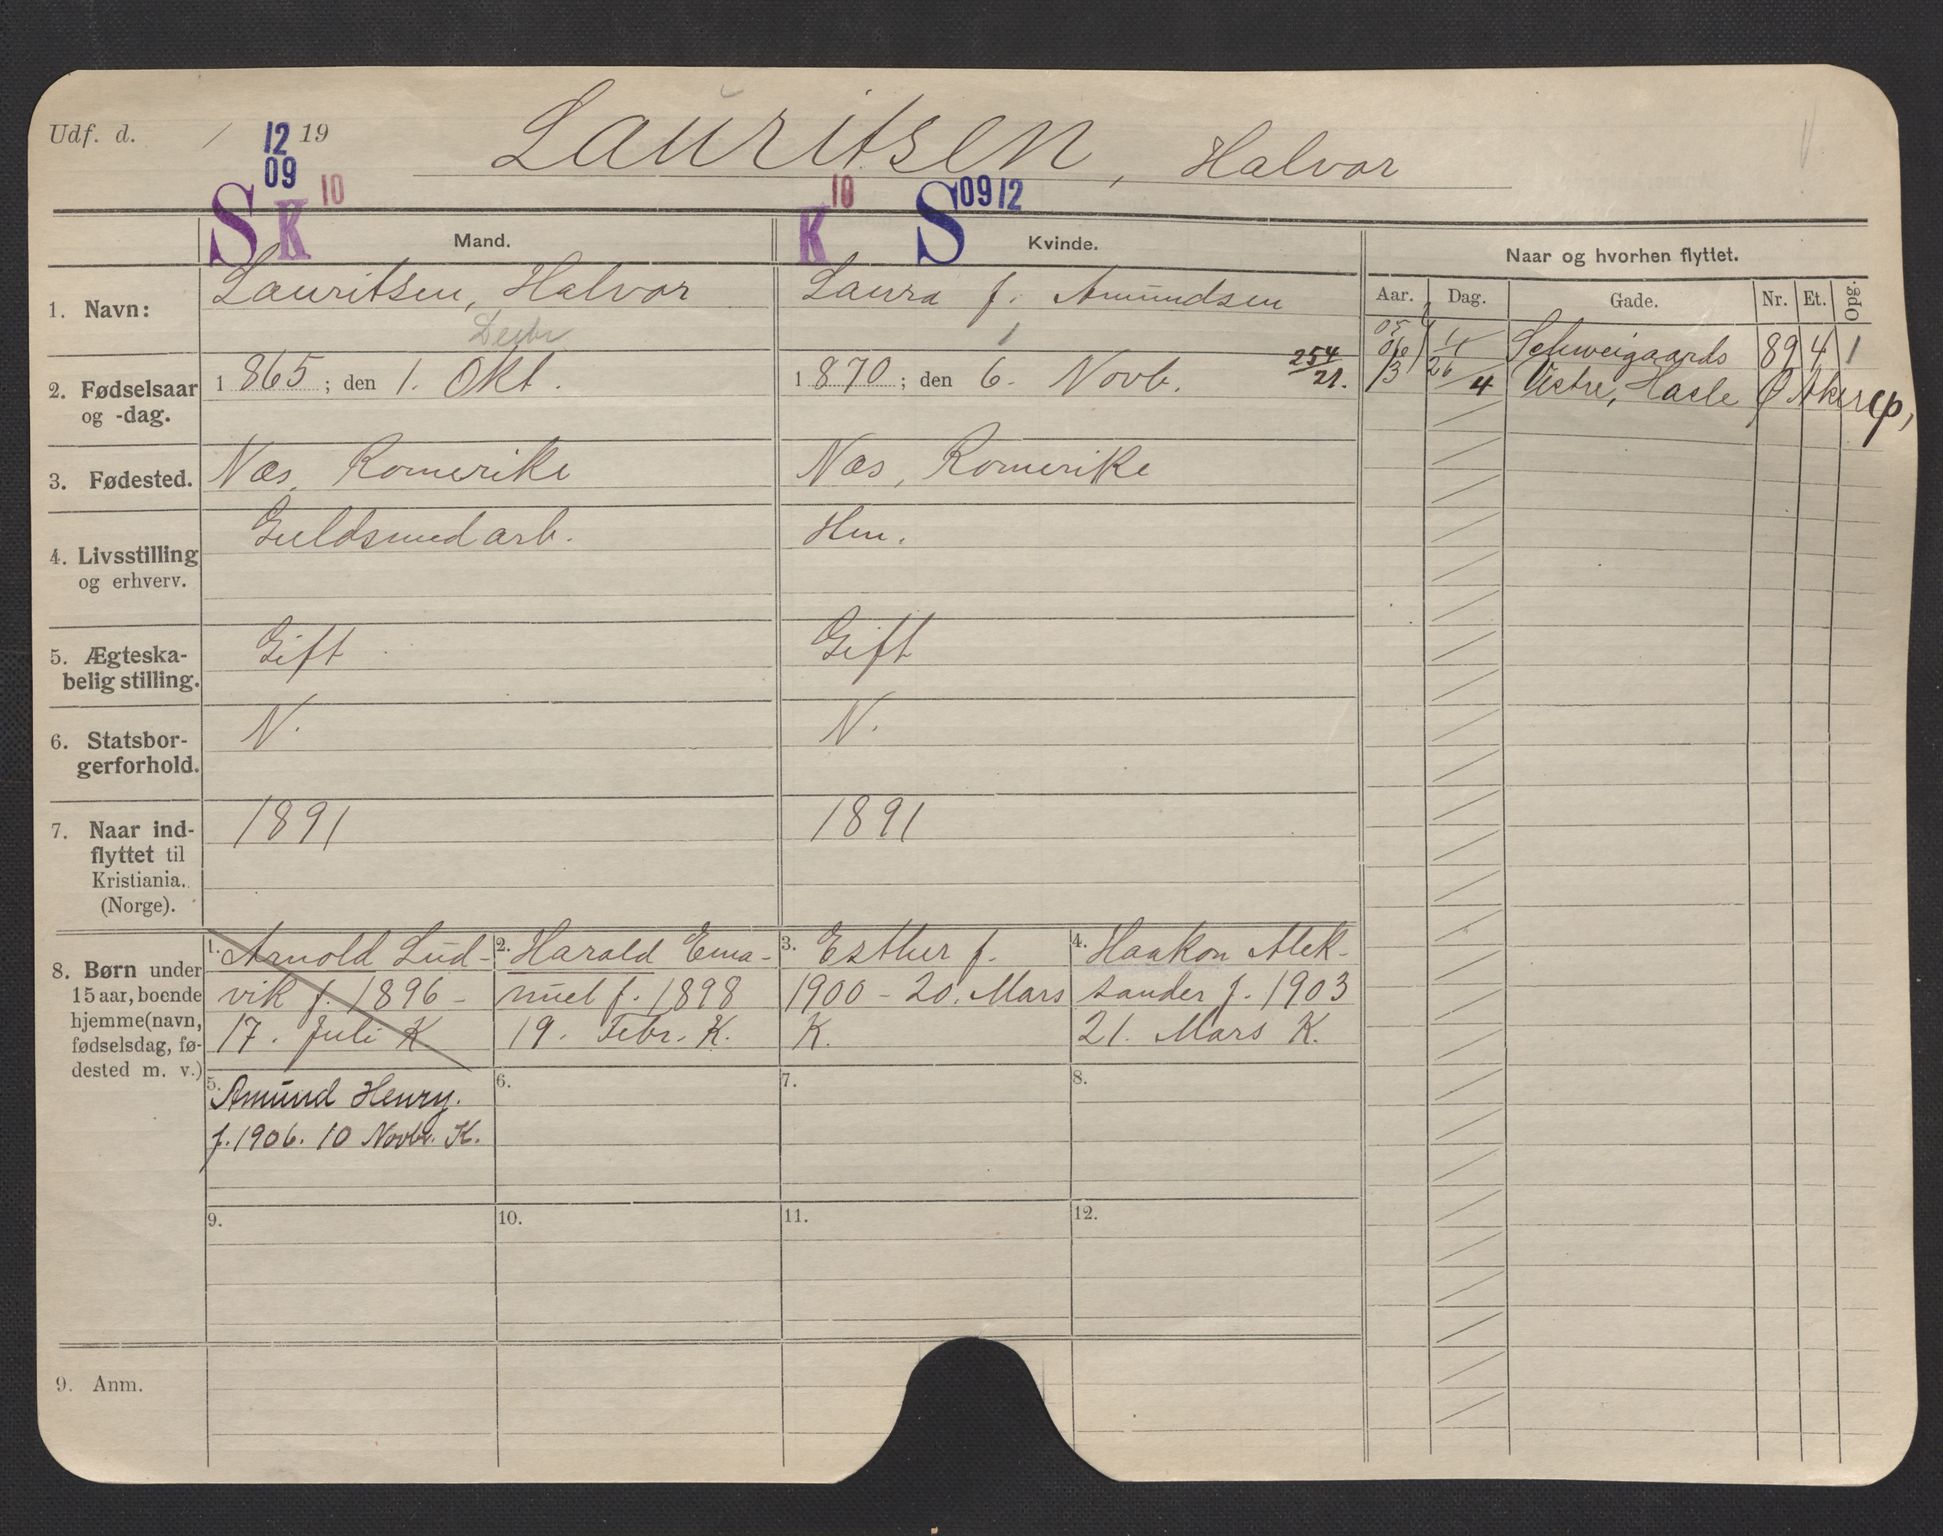 Udf. d. / 19
12
09
Lauritsen, Halvor
S K 10
K 10 S 09 12
Mand.
Kvinde.
Naar og hvorhen flyttet.
Aar. Dag. Gade. Nr. Et. Opg.
1. Navn:
Lauritsen, Halvor
Laura f. Amundsen
2. Fødselsaar
og -dag.
Decbr
1865; den 1. Okt.
1870; den 6. Novb.
254/21.
3. Fødested.
Næs, Romerike
Næs, Romerike
4. Livsstilling
og erhverv.
Guldsmedarb.
Hm.
5. Ægteska-
belig stilling.
Gift
Gift
6. Statsbor-
gerforhold.
N.
N.
7. Naar ind-
flyttet til
Kristiania.
(Norge).
1891
1891
8. Børn under
15 aar, boende
hjemme (navn,
fødselsdag, fø-
dested m. v.)
1. Arnold Lud-
vik f. 1896 -
17. Juli K
2. Harald Ema-
nuel f. 1898
19. Febr. K.
3. Esther f.
1900 - 20. Mars
K.
4. Haakon Alek-
sander f. 1903
21. Mars K.
5. Amund Henry.
f. 1906. 10 Novbr. K.
6.
7.
8.
9.
10.
11.
12.
9. Anm.
05
06 Schweigaards 89 4 1
13 26/4 Vestre, Hasle Ø Aker